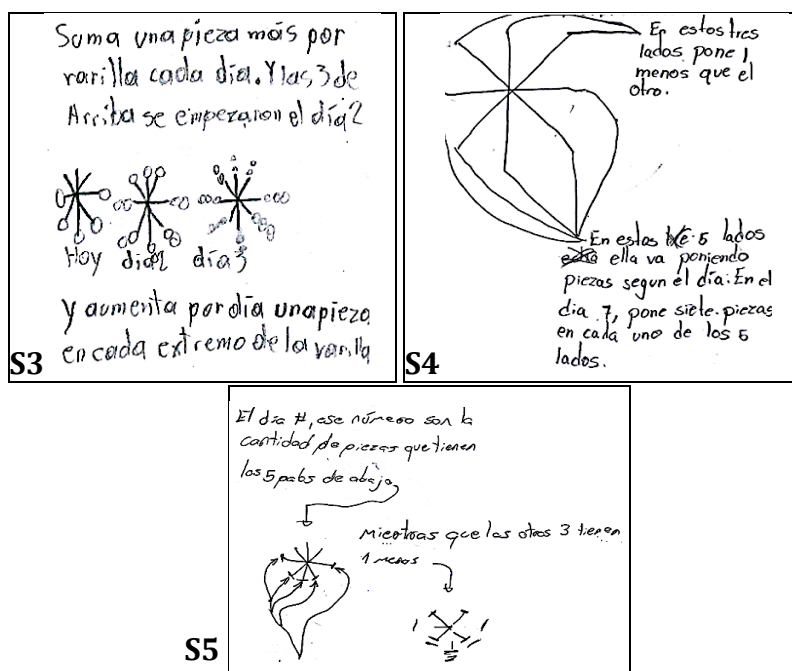 Suma una pieza más por
varilla cada día. Y las 3 de
Arriba se empezaron el día 2
Hoy día 2 día 3
Y aumenta por día una pieza
en cada extremo de la varilla
S3
En estos tres
lados pone 1
menos que el
otro.
En estos 5 lados
ella va poniendo
piezas segun el día: En el
dia 7, pone siete piezas
en cada uno de los 5
lados.
S4
El día #, ese número son la
cantidad de piezas que tienen
los 5 palos de abajo
Mientras que los otros 3 tienen
1 menos
S5